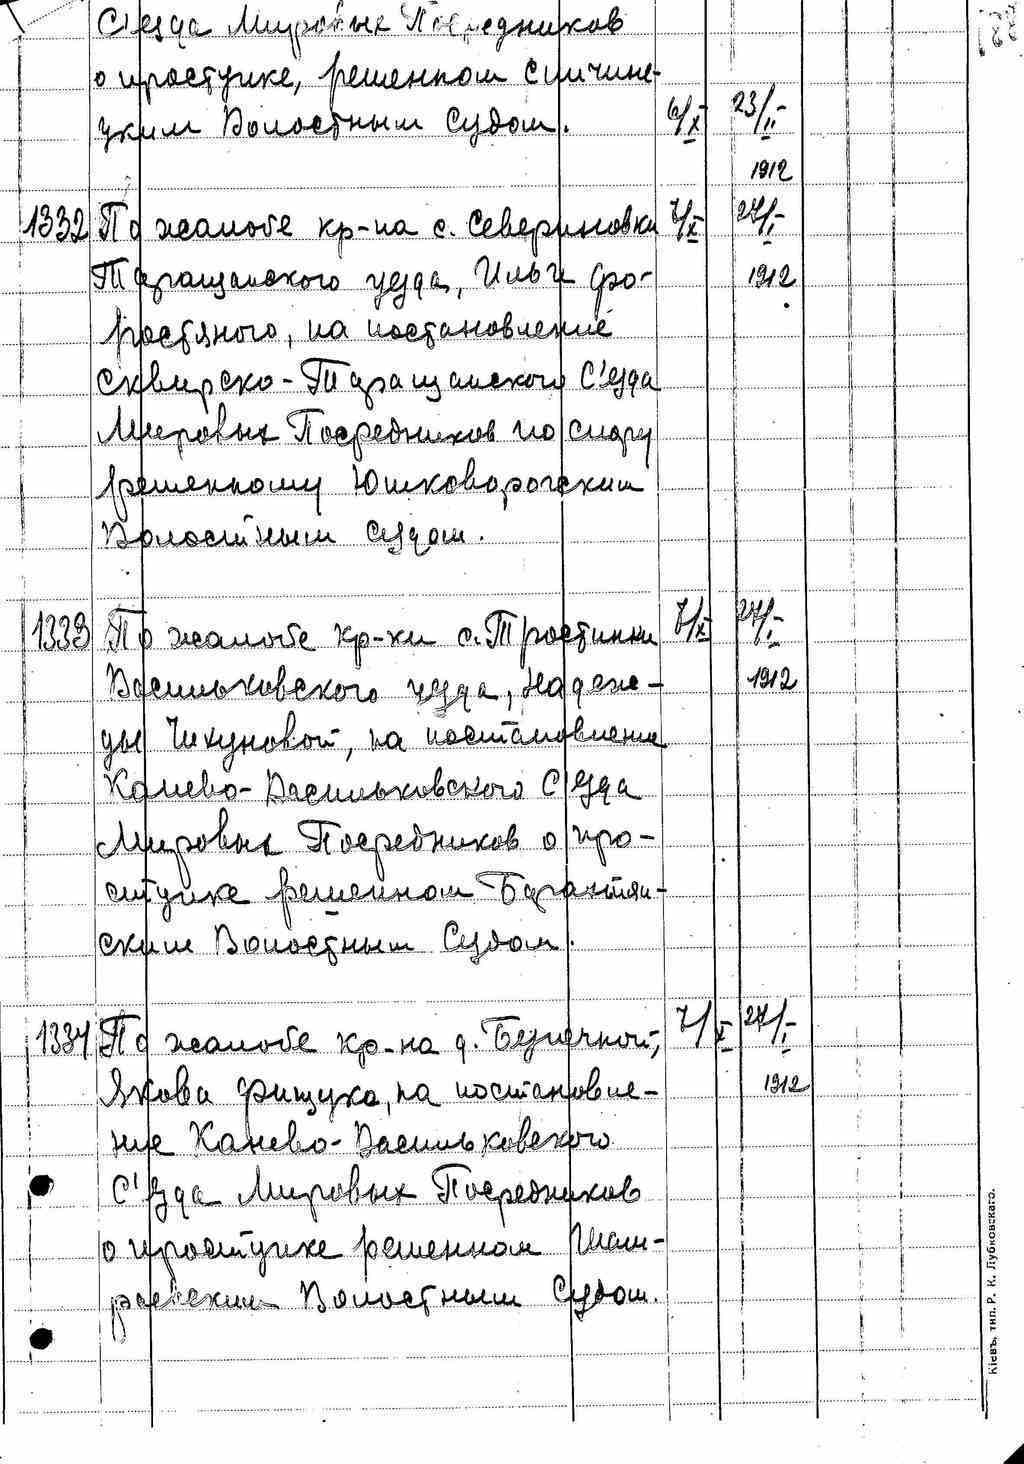 С'езда Мировых Посредников
о проступке, решенном Спичине-
цким Волостным Судом. 6/X 23/II
1912
1332 По жалобе кр-на с. Севериновки 7/X 27/I
Таращанского уезда, Ильи Фо-
ростяного, на постановление 1912
Сквирско-Таращанского С'езда
Мировых Посредников по спору
решенному Юшковорогским
Волостным Судом.
1333 По жалобе кр-ки с. Тростинки 7/X 27/I
Васильковского уезда, Надеж- 1912
ды Чикуновой, на постановление
Канево-Васильковского С'езда
Мировых Посредников о про-
ступке решенном Барахтян-
ским Волостным Судом.
1334 По жалобе кр-на д. Безпечной, 7/X 27/I
Якова Рищука, на постановле- 1912
ние Канево-Васильковского
С'езда Мировых Посредников
о проступке решенном Шам-
раевским Волостным Судом.
Кіевъ, тип. Р. К. Лубковскаго.